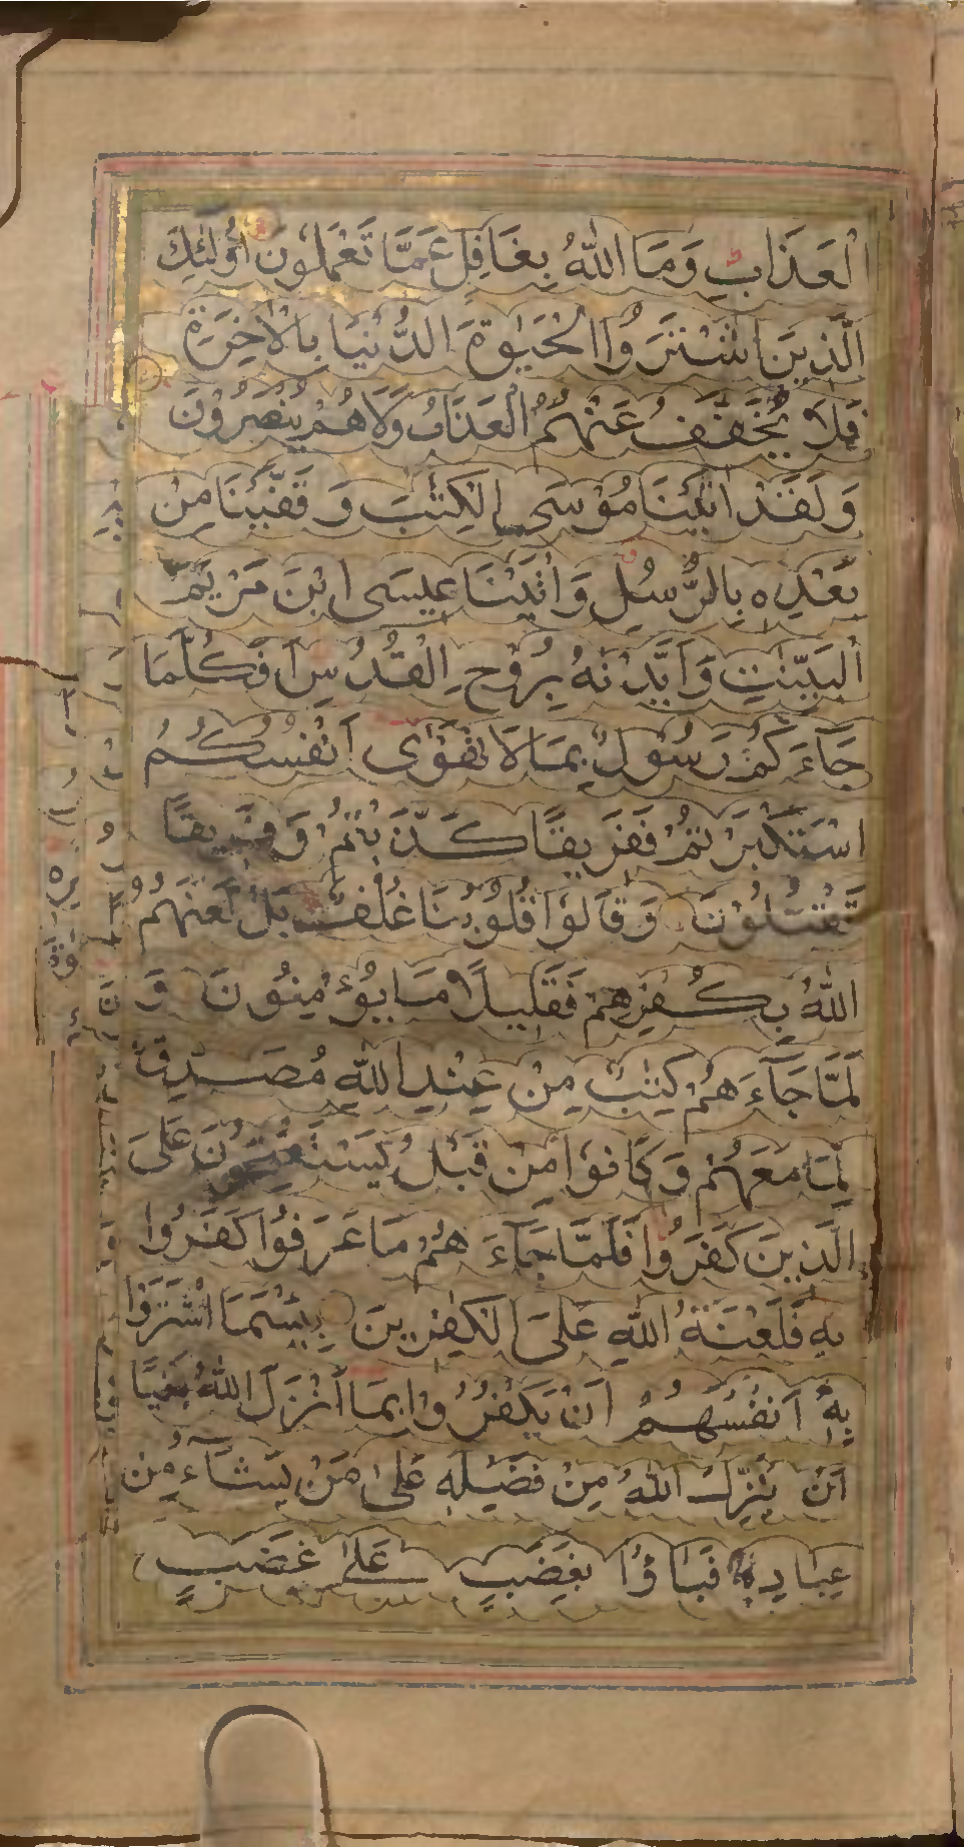 الْعَذَابِ وَمَا اللّٰهُ بِغَافِلٍ عَمَّا تَعْمَلُونَ اُولٰئِكَ
الَّذِينَ اشْتَرَوُا الْحَيٰوةَ الدُّنْيَا بِالْاٰخِرَةِ
فَلَا يُخَفَّفُ عَنْهُمُ الْعَذَابُ وَلَا هُمْ يُنْصَرُوْنَ
وَلَقَدْ اٰتَيْنَا مُوْسَى الْكِتٰبَ وَقَفَّيْنَا مِنْ
بَعْدِهٖ بِالرُّسُلِ وَاٰتَيْنَا عِيسَى ابْنَ مَرْيَمَ
الْبَيِّنٰتِ وَاَيَّدْنٰهُ بِرُوْحِ الْقُدُسِ اَفَكُلَّمَا
جَآءَكُمْ رَسُوْلٌ بِمَا لَا تَهْوٰى اَنْفُسُكُمُ
اسْتَكْبَرْتُمْ فَفَرِيقًا كَذَّبْتُمْ وَفَرِيقًا
تَقْتُلُوْنَ وَقَالُوْا قُلُوْبُنَا غُلْفٌ بَلْ لَعَنَهُمُ
اللّٰهُ بِكُفْرِهِمْ فَقَلِيلًا مَا يُؤْمِنُوْنَ وَ
لَمَّا جَآءَهُمْ كِتٰبٌ مِنْ عِنْدِ اللّٰهِ مُصَدِّقٌ
لِمَا مَعَهُمْ وَكَانُوْا مِنْ قَبْلُ يَسْتَفْتِحُوْنَ عَلَى
الَّذِينَ كَفَرُوْا فَلَمَّا جَآءَهُمْ مَا عَرَفُوْا كَفَرُوْا
بِهٖ فَلَعْنَةُ اللّٰهِ عَلَى الْكٰفِرِينَ بِئْسَمَا اشْتَرَوْا
بِهٖ اَنْفُسَهُمْ اَنْ يَكْفُرُوْا بِمَا اَنْزَلَ اللّٰهُ بَغْيًا
اَنْ يُنَزِّلَ اللّٰهُ مِنْ فَضْلِهٖ عَلٰى مَنْ يَشَآءُ مِنْ
عِبَادِهٖ فَبَاؤُا بِغَضَبٍ عَلٰى غَضَبٍ